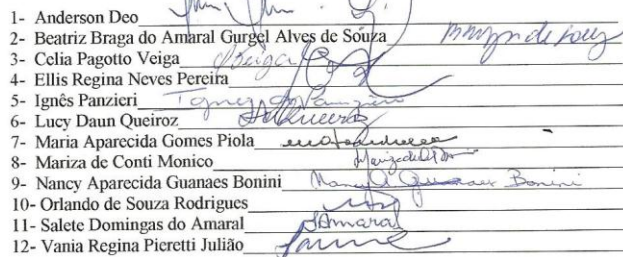 1- Anderson Deo
2- Beatriz Braga do Amaral Gurgel Alves de Souza
3- Celia Pagotto Veiga Veiga
4- Ellis Regina Neves Pereira
5- Ignês Panzieri
6- Lucy Daun Queiroz
7- Maria Aparecida Gomes Piola
8- Mariza de Conti Monico
9- Nancy Aparecida Guanaes Bonini Nancy A Guanaes Bonini
10- Orlando de Souza Rodrigues
11- Salete Domingas do Amaral SAmaral
12- Vania Regina Pieretti Julião